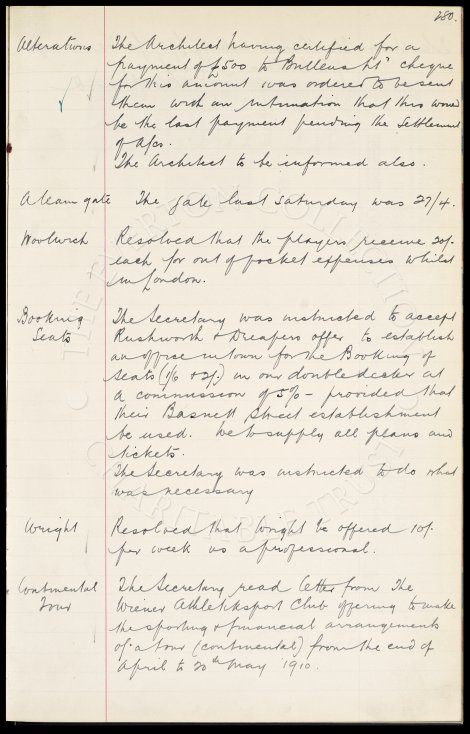 280.
Alterations The Architect having certified for a
payment of £500 to Bullens Ld' cheque
for this amount was ordered to be sent
them with an intimation that this would
be the last payment pending the settlement
of A/cs.
The Architect to be informed also.
A team gate The gate last Saturday was 27/4.
Woolwich Resolved that the players receive 20/-
each for out of pocket expenses whilst
in London.
Booking The Secretary was instructed to accept
Seats Rushworth & Dreapers offer to establish
an office in town for the Booking of
Seats (1/6 + 2/-) in our doubledecker at
a commission of 5% - provided that
their Basnett Street establishment
be used. We to supply all plans and
tickets.
The Secretary was instructed to do what
was necessary
Wright Resolved that Wright be offered 10/-
per week as a professional.
Continental The Secretary read letter from The
Tour Wiener Athletiksport Club offering to make
the sporting & financial arrangements
of a tour (continental) from the end of
April to 20th May 1910.
THE EVERTON COLLECTION
CHARITABLE TRUST